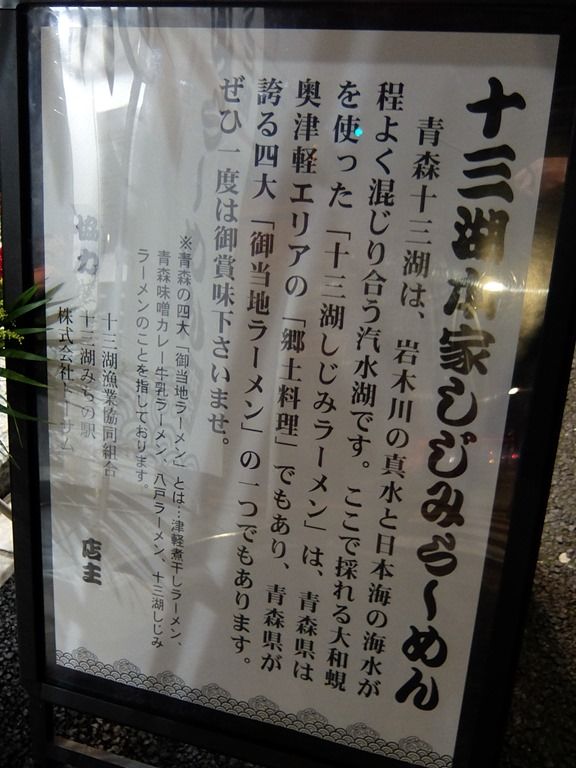 十三湖本家しじみらーめん
青森十三湖は、岩木川の真水と日本海の海水が
程よく混じり合う汽水湖です。ここで採れる大和蜆
を使った「十三湖しじみラーメン」は、青森県は
奥津軽エリアの「郷土料理」でもあり、青森県が
誇る四大「御当地ラーメン」の一つでもあります。
ぜひ一度は御賞味下さいませ。
※青森の四大「御当地ラーメン」とは…津軽煮干しラーメン、
青森味噌カレー牛乳ラーメン、八戸ラーメン、十三湖しじみ
ラーメンのことを指しております。
協力
十三湖漁業協同組合
十三湖みちの駅
株式会社トーサム
店主